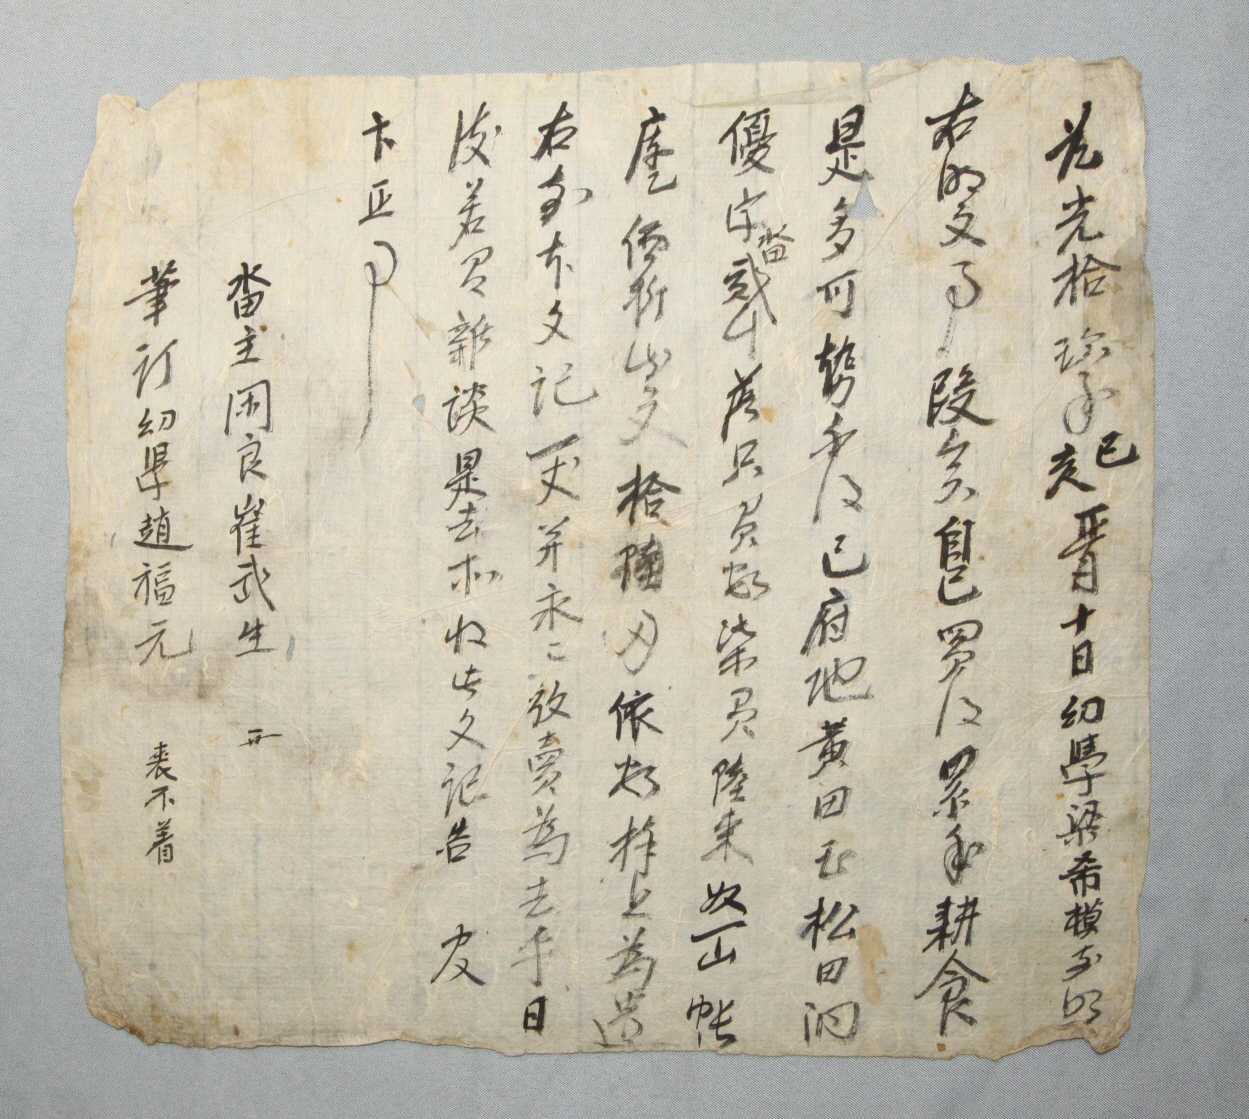 道光拾玖年己亥正月十日幼學梁希模前明
右明文事段矣自己買得累年耕食
是多可勢不得已府地黃田面松田洞
優字畓貳斗落只負數柒負陸束奴一山帳
庫乙價折錢文拾陸兩依數捧上爲遣
右前本文記一丈幷永永放賣爲去乎日
後若有雜談是去等以此文記告官
卞正事
畓主閑良崔武生
筆訂幼學趙福元 喪不着